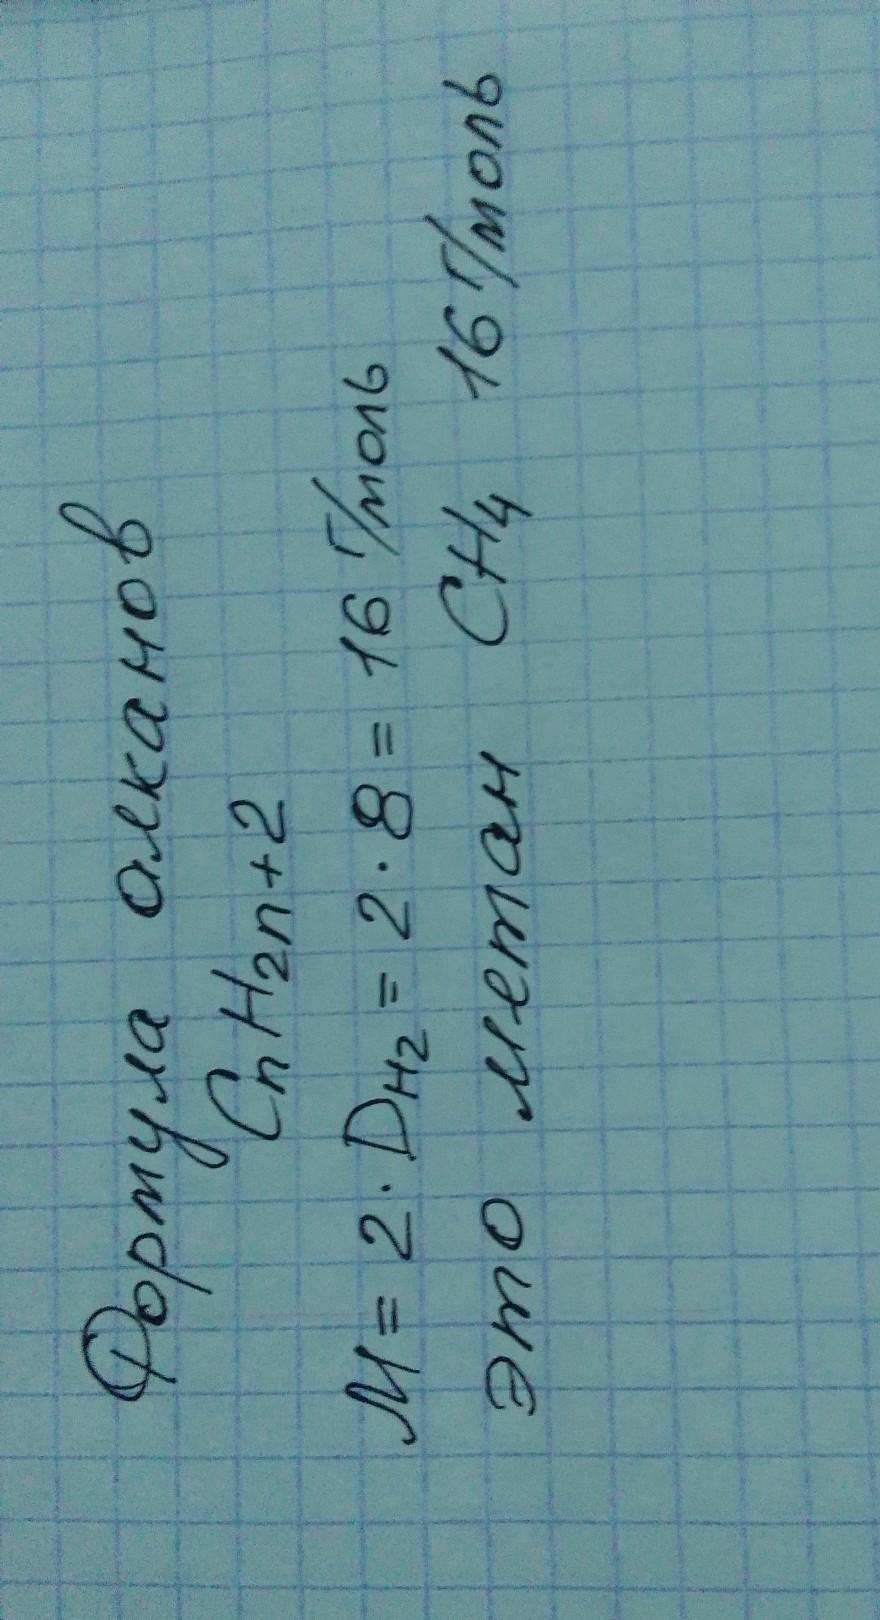 Формула алканов
CnH2n+2
M = 2 · DH2 = 2 · 8 = 16 г/моль
это метан CH4 16 г/моль